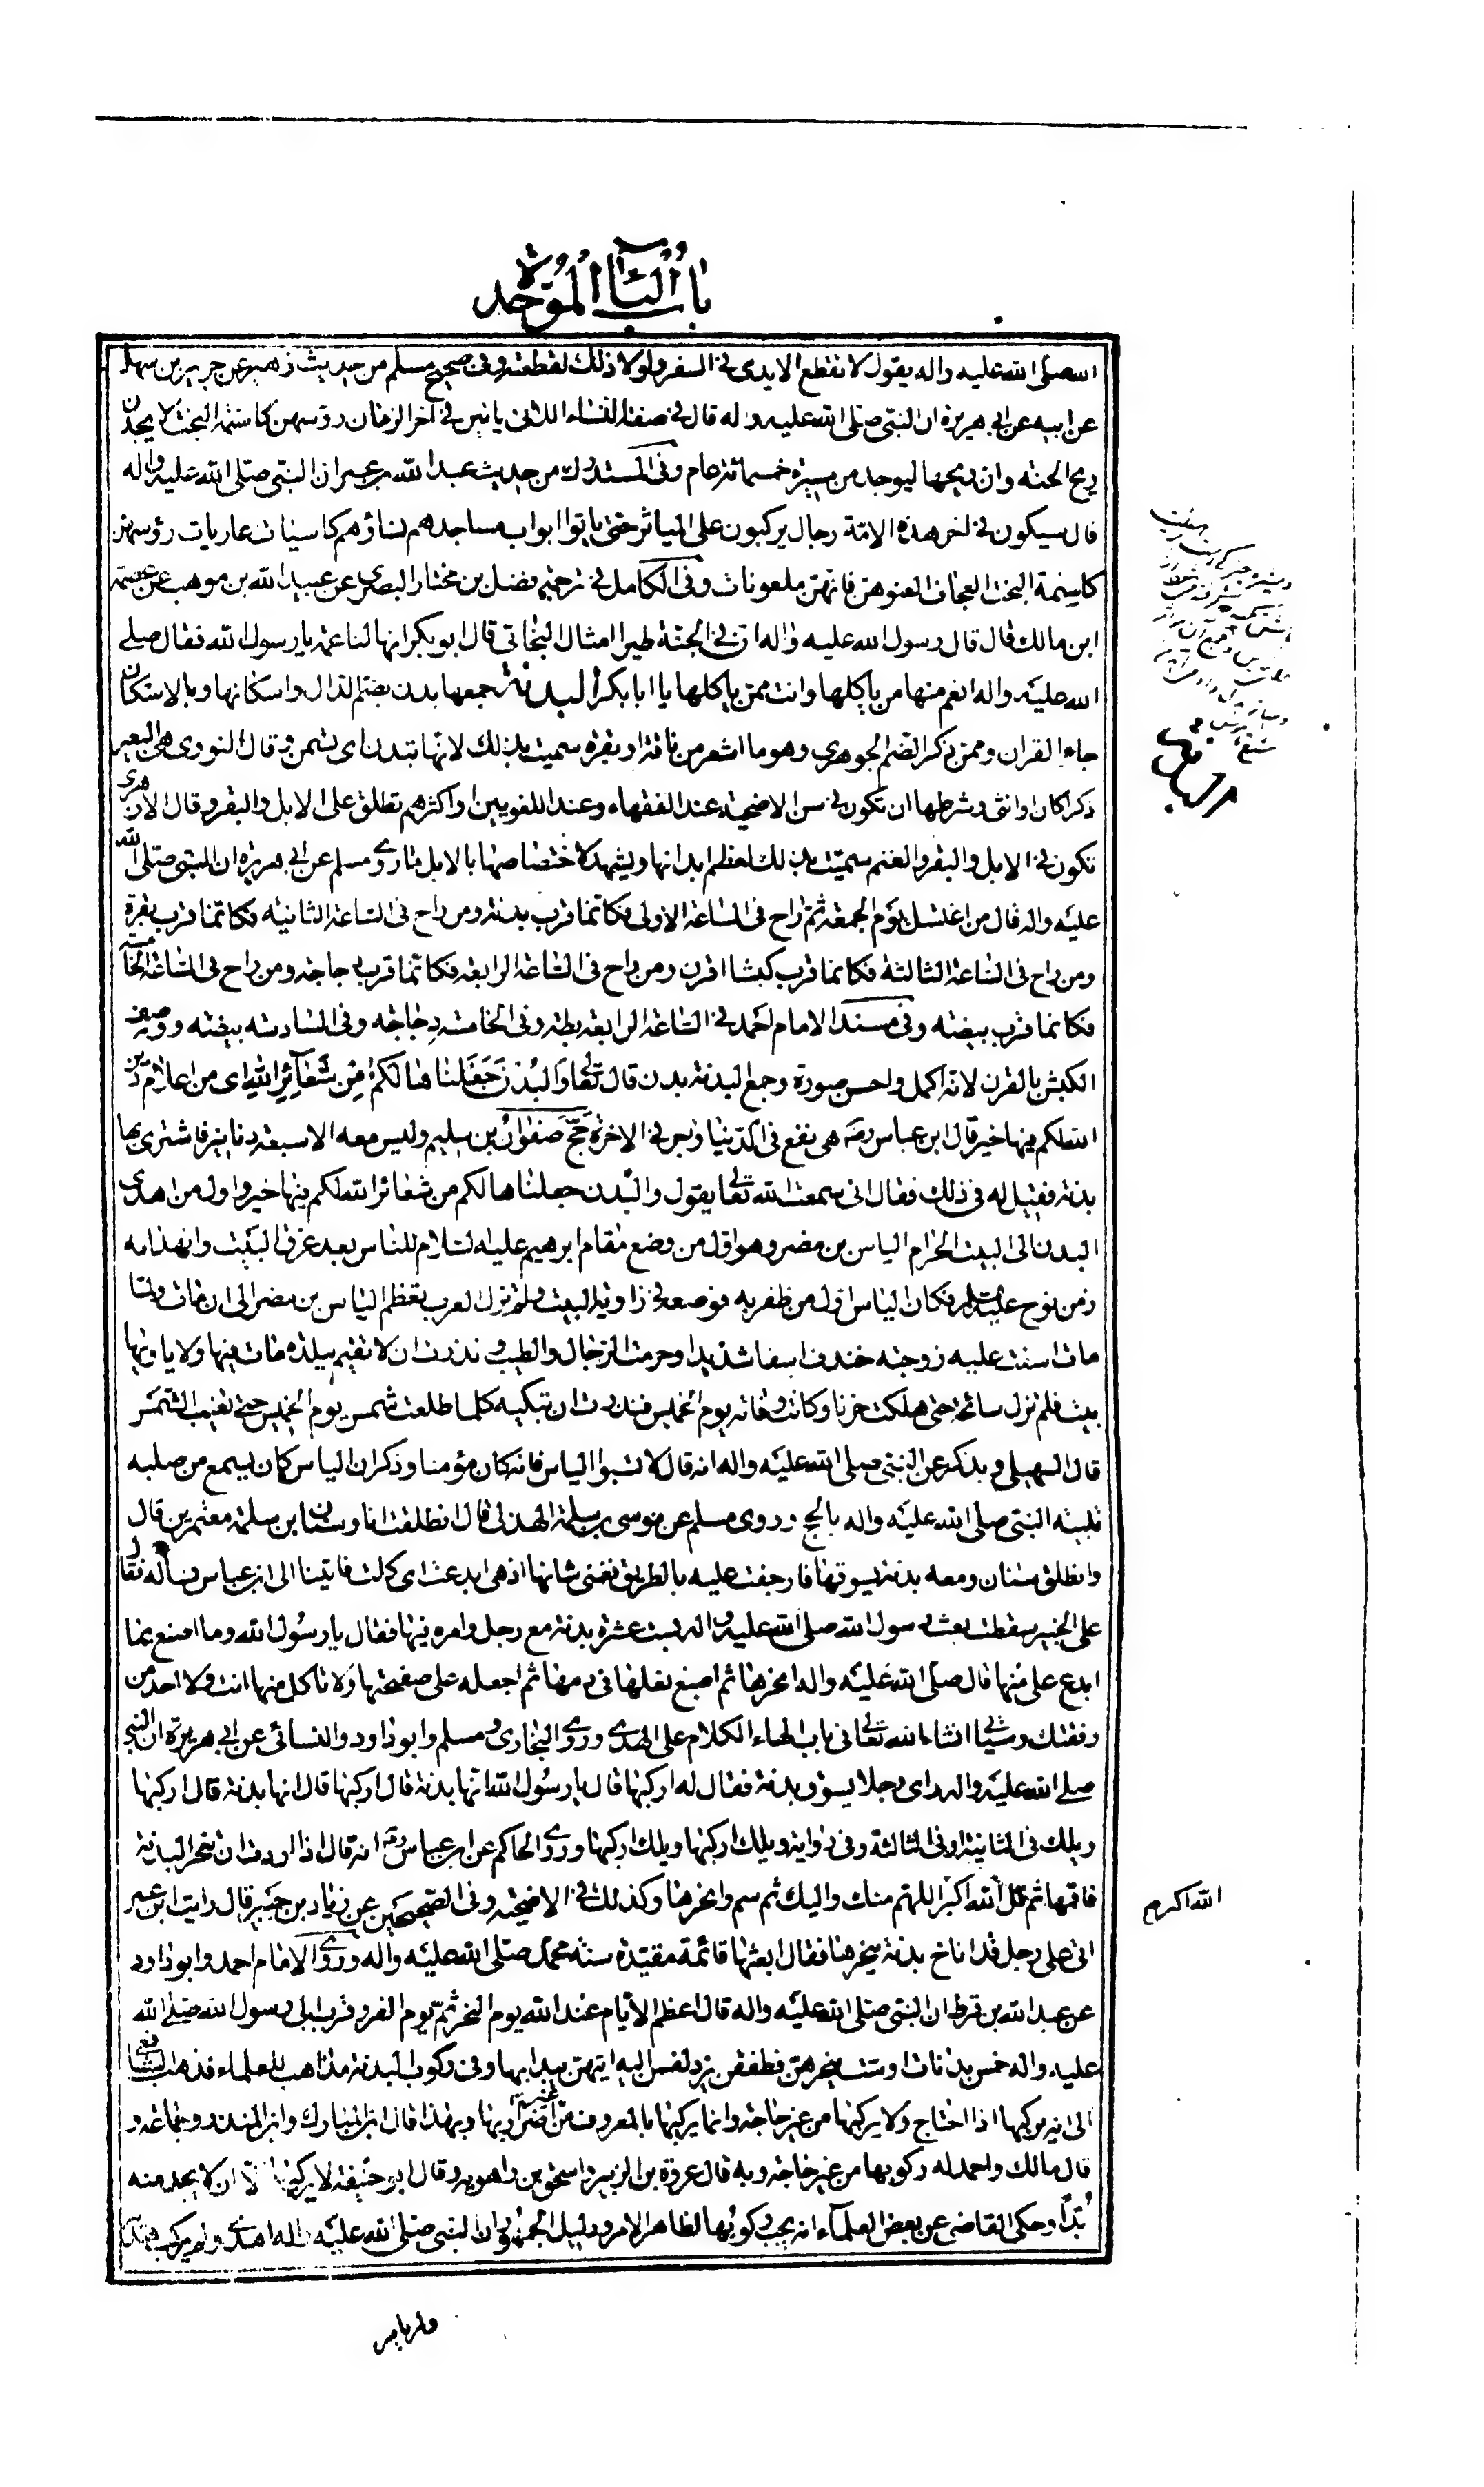 باب الباء الموحدة
الله صلى الله عليه واله يقول لا تقطع الايدى فى السفر ولولا ذلك لقطعته وفى صحيح مسلم من حديث زهير عن جرير بن سهل
عن ابيه عن ابى هريرة ان النبى صلى الله عليه واله قال فى صفة النساء اللاتى ياتين فى اخر الزمان رؤسهن كاسنمة البخت لا يجدن
ريح الجنة وان ريحها ليوجد من مسيرة خمسمائة عام وفى المستدرك من حديث عبد الله بن عمر ان النبى صلى الله عليه واله
قال سيكون فى اخر هذه الامة رجال يركبون على المياثر حتى ياتوا ابواب مساجدهم نساؤهم كاسيات عاريات رؤسهن
كاسنمة البخت العجاف العنوهن فانهن ملعونات وفى الكامل فى ترجمة فضل بن مختار البصرى عن عبيد الله بن موهب عن عصمة
ابن مالك قال قال رسول الله عليه واله ان فى الجنة طيرا امثال البخاتى قال ابو بكر انها لناعمة يا رسول الله فقال صلى
الله عليه واله انعم منها من ياكلها وانت ممن ياكلها يا ابا بكر البدنة جمعها بدن بضم الدال واسكانها وبالاسكان
جاء القران وممن ذكر الضم الجوهرى وهو ما اشعر من ناقة او بقرة سميت بذلك لانها تبدن اى تسمن وقال النورى هى البعير
ذكرا كان او انثى وشرطها ان تكون فى سن الاضحية عند الفقهاء وعند اللغويين او اكثرهم تطلق على الابل والبقر وقال الازهرى
تكون فى الابل والبقر والغنم سميت بذلك لعظم ابدانها ويشهد لاختصاصها بالابل ما روى مسلم عن ابى هريرة ان النبى صلى الله
عليه واله قال من اغتسل يوم الجمعة ثم راح فى الساعة الاولى فكانما قرب بدنة ومن راح فى الساعة الثانية فكانما قرب بقرة
ومن راح فى الساعة الثالثة فكانما قرب كبشا اقرن ومن راح فى الساعة الرابعة فكانما قرب دجاجة ومن راح فى الساعة الخامسة
فكانما قرب بيضة وفى مسند الامام احمد فى الساعة الرابعة بطة وفى الخامسة دجاجة وفى السادسة بيضة ووصف
الكبش بالقرن لانه اكمل واحسن صورة وجمع البدنة بدن قال تعالى وَالبُدْنَ جَعَلنَاهَا لَكُمْ مِنْ شَعَآئِرِ اللهِ اى من اعلام دين
الله لكم فيها خير قال ابن عباس رضه هى نفع فى الدنيا واجر فى الاخرة حج صفوان بن سليم وليس معه الا سبعة دنانير فاشترى بها
بدنة فقيل له فى ذلك فقال انى سمعت الله تعالى يقول والبدن جعلناها لكم من شعائر الله لكم فيها خير واول من اهدى
البدن الى البيت الحرام الياس بن مضر وهو اول من وضع مقام ابرهيم عليه السلام للناس بعد غرق البيت وانهدامه
زمن نوح عليه السلام فكان الياس اول من ظفر به فوضعه فى زاوية البيت ولم تزل العرب تعظم الياس بن مضر الى ان مات ولما
مات اسفت عليه زوجته خندف اسفا شديدا وحرمت الرجال والطيب ونذرت ان لا تقيم ببلدة مات فيها ولا ياويها
بيت فلم تزل سائحة حتى هلكت حزنا وكانت وفاته يوم الخميس فنذرت ان تبكيه كلما طلعت شمس يوم الخميس حتى تغيب الشمس
قال السهيلى ويذكر عن النبى صلى الله عليه واله انه قال لا تسبوا الياس فانه كان مؤمنا وذكر ان الياس كان يسمع من صلبه
تلبية النبى صلى الله عليه واله بالحج وروى مسلم عن موسى بن سلمة الهذلى قال انطلقت انا وسنان ابن سلمة معتمرين قال
وانطلق سنان ومعه بدنة يسوقها فارجفت عليه بالطريق فعنى شانها اذ هى ابدعت اى كلت فاتينا الى ابن عباس فساله فقال
على الخبير سقطت بعث رسول الله صلى الله عليه واله بست عشرة بدنة مع رجل وامره فيها فقال يا رسول الله وما اصنع بما
ابدع على منها قال صلى الله عليه واله انحرها ثم اصبغ نعلها فى دمها ثم اجعله على صفحتها ولا تاكل منها انت ولا احد من
رفقتك وسياتى انشاء الله تعالى فى باب الهاء الكلام على الهدى وروى البخارى ومسلم وابو داود والنسائى عن ابى هريرة ان النبى
صلى الله عليه واله راى رجلا يسوق بدنة فقال له اركبها قال يا رسول الله انها بدنة قال اركبها قال انها بدنة قال اركبها
ويلك فى الثانية او فى الثالثة وفى رواية ويلك اركبها ويلك اركبها وروى الحاكم عن ابن عباس رضه انه قال اذا اردت ان تنحر البدنة
فاقمها ثم قل الله اكبر اللهم منك واليك ثم سم وانحرها وكذلك فى الاضحية وفى الصحيحين عن زياد بن جبير قال رايت ابن عمر
اتى على رجل قد اناخ بدنة ينحرها فقال ابعثها قائمة مقيدة سنة محمد صلى الله عليه واله وروى الامام احمد وابو داود
عن عبد الله بن قرط ان النبى صلى الله عليه واله قال اعظم الايام عند الله يوم النحر ثم يوم الفر وقرب الى رسول الله صلى الله
عليه واله خمس بدنات او ست ينحرهن فطفقن يزدلفن اليه ايتهن يبدا بها وفى ركوب البدنة مذاهب للعلماء فذهب الشافعى
الى انه يركبها اذا احتاج ولا يركبها من غير حاجة وانما يركبها بالمعروف من غير اضرار بها وبهذا قال ابن المبارك وابن المنذر وجماعة و
قال مالك واحمد له ركوبها من غير حاجة وبه قال عروة بن الزبير واسحق بن راهويه وقال ابو حنيفة لا يركبها الا ان لا يجد منه
بدا وحكى القاضى عن بعض العلماء انه يجب ركوبها لظاهر الامر ودليل الجمهور ان النبى صلى الله عليه واله اهدى ولم يركب هديه
الله اكبر
ولم يامر